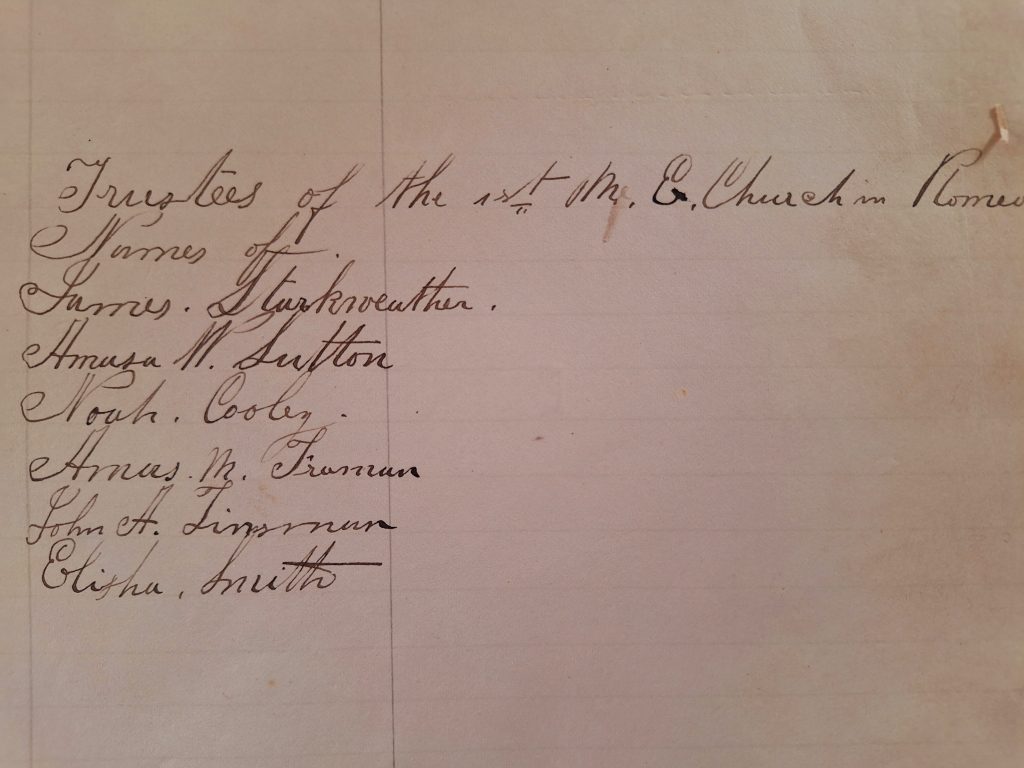 Trustees of the 1st M. E. Church in Romeo
Names of
James. Starkweather.
Amasa W. Sutton
Noah. Cooley.
Amus. M. Truman
John A. Tinsman
Elisha, Smith